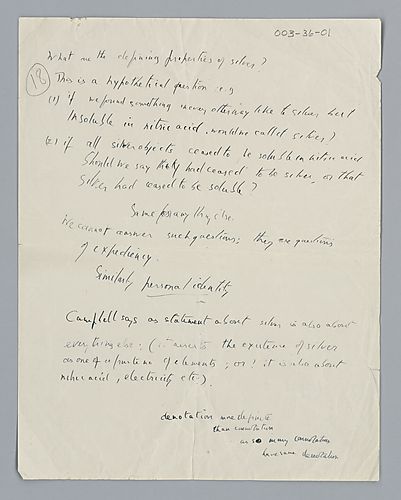 003-36-01
What are the defining properties of silver?
(12) This is a hypothetical question e.g
(1) if we found something in every other way like to silver but
Insoluble in nitric acid, would we call it silver?
(2) if all silver objects ceased to be soluble in nitric acid
Should we say they had ceased to be silver, or that
Silver had ceased to be soluble?
Same for anything else.
We cannot answer such questions; they are questions
of expediency.
Similarly personal identity
Campbell says as statement about silver is also about
everything else; (it asserts the existence of silver
as one of elements; or? it is also about
nitric acid, electricity etc).
denotation more definite
than connotation
as so many connotations
have same denotation